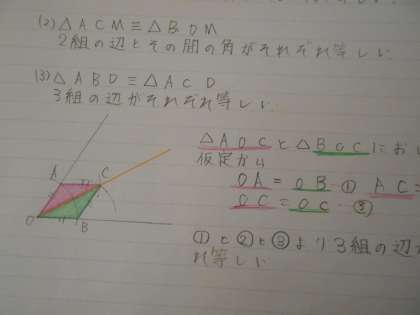 (2) △ACM≡△BDM
2組の辺とその間の角がそれぞれ等しい
(3) △ABD≡△ACD
3組の辺がそれぞれ等しい
△AOCと△BOCにおい
仮定から
OA=OB-① AC=
OC=OC-③
①と②と③より3組の辺が
れ等しい
A
C
O
B